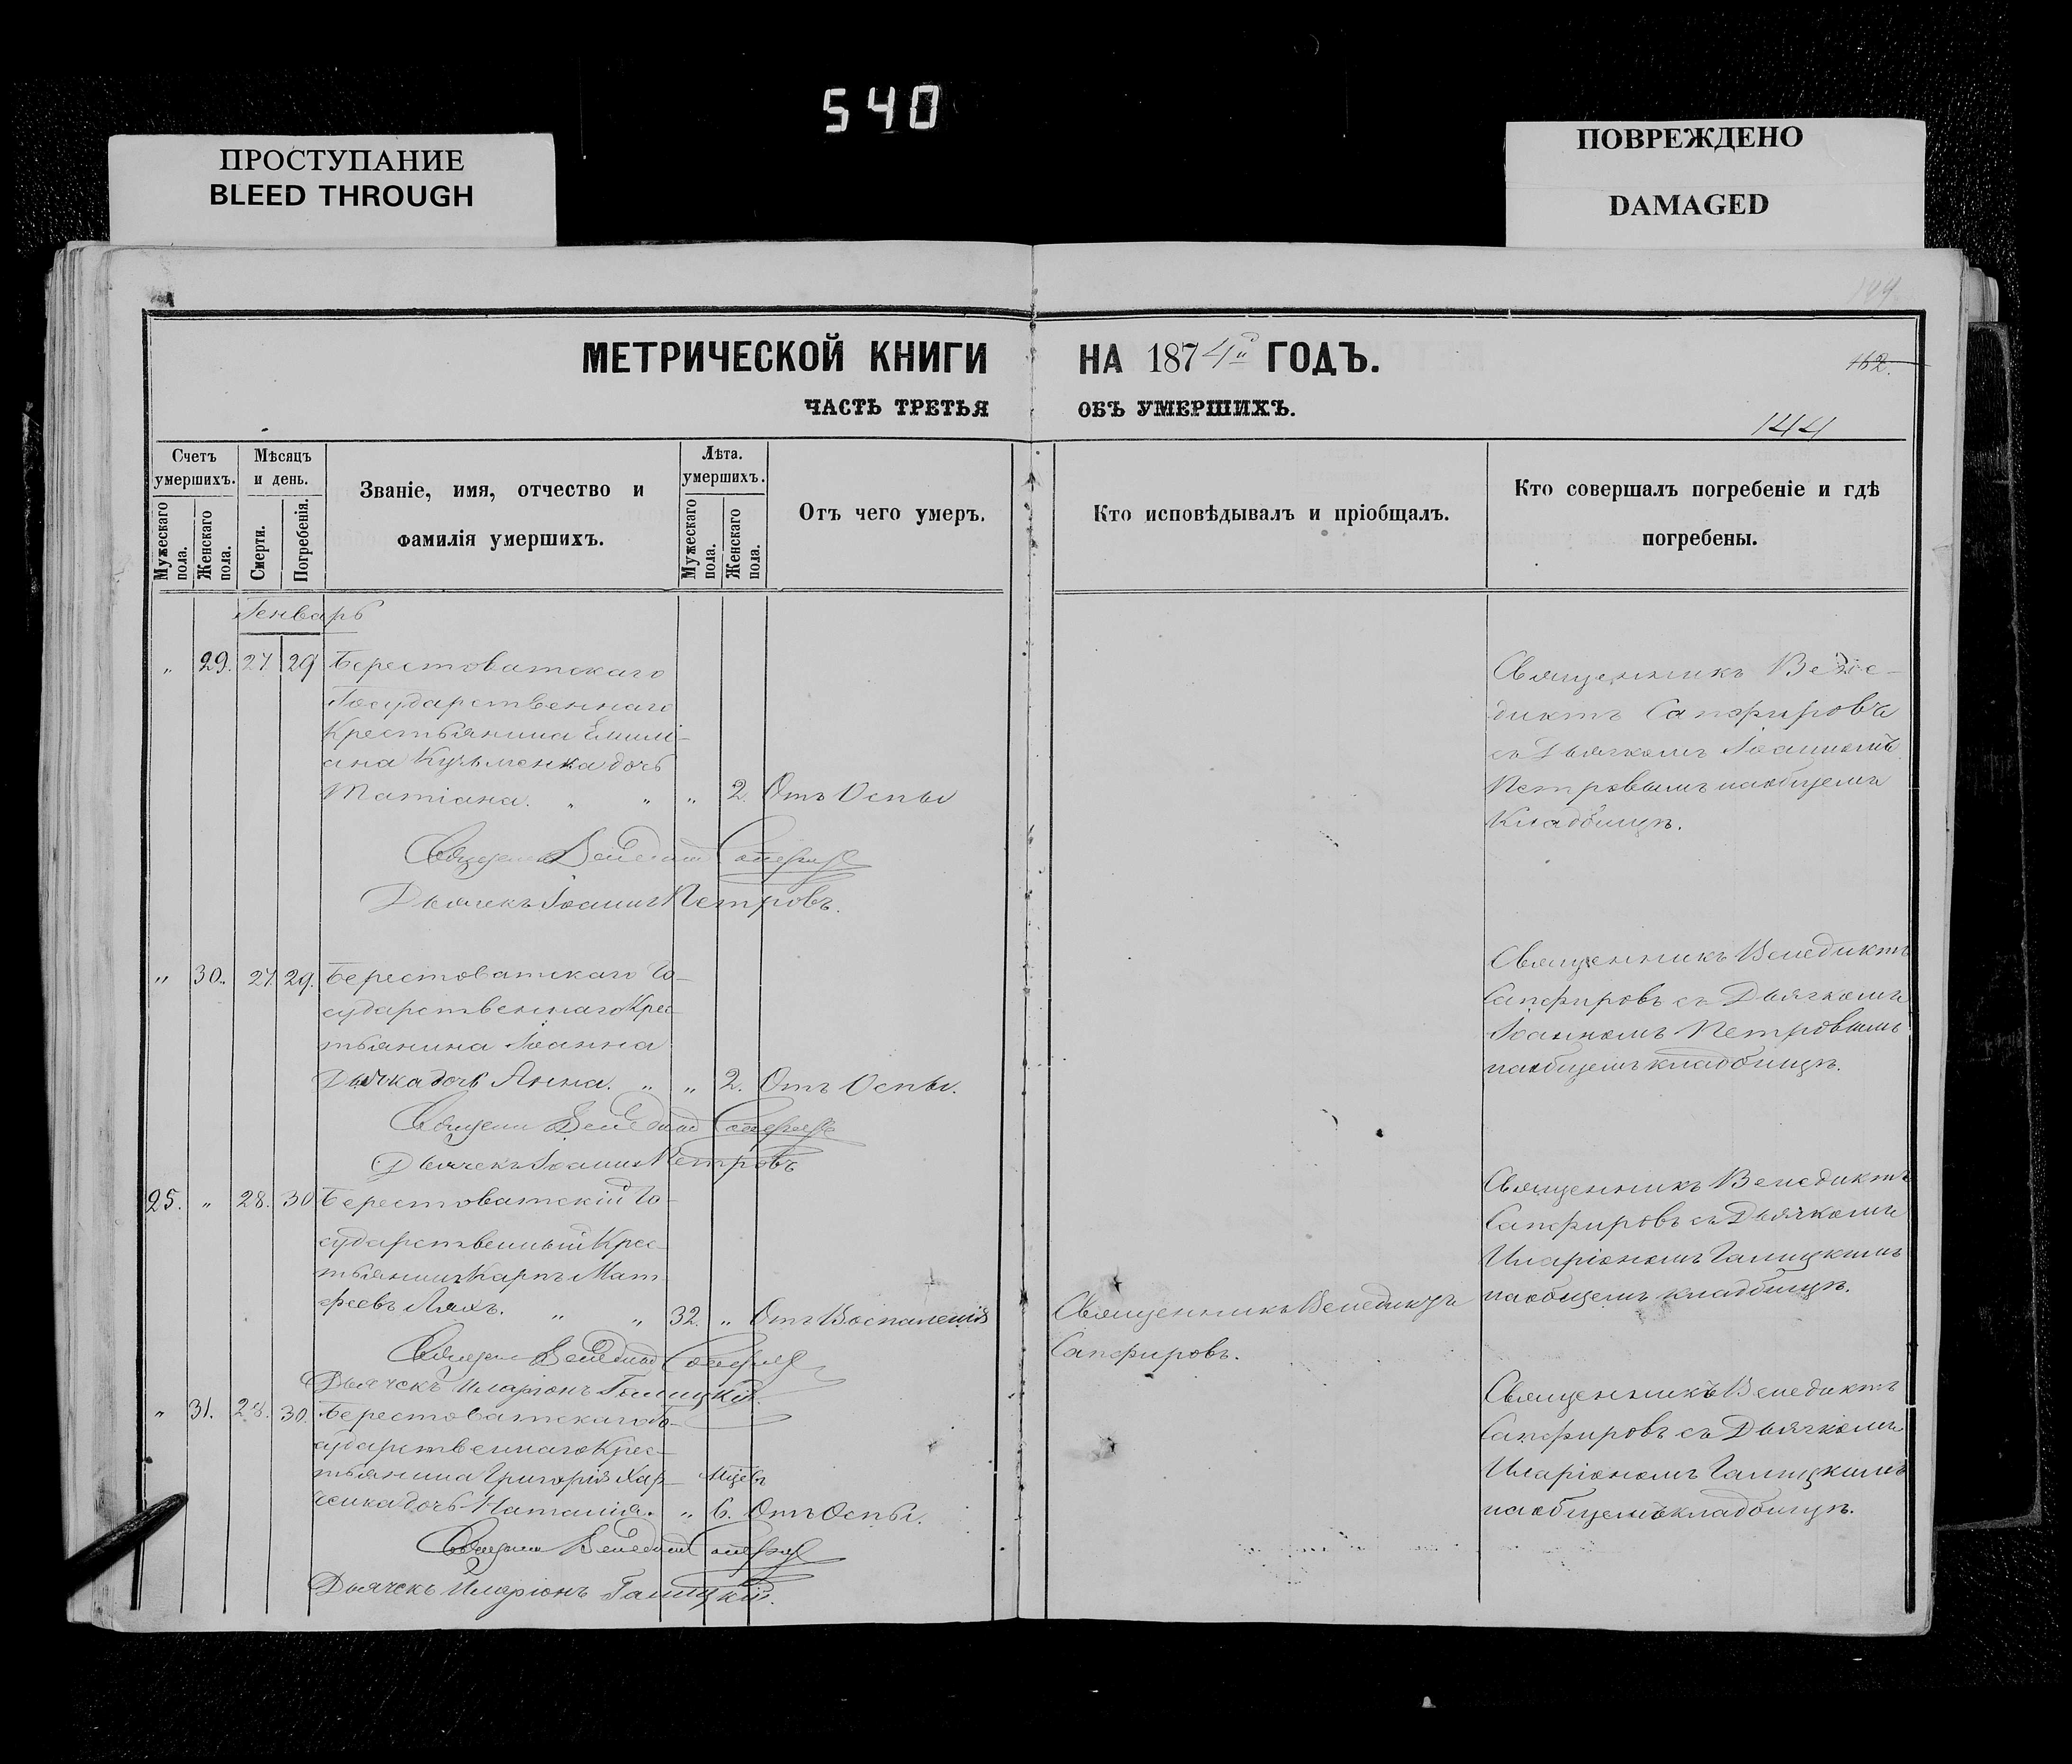 540
ПРОСТУПАНИЕ
BLEED THROUGH
ПОВРЕЖДЕНО
DAMAGED
МЕТРИЧЕСКОЙ КНИГИ НА 1874й ГОДЪ.
162.
ЧАСТЬ ТРЕТЬЯ ОБЪ УМЕРШИХЪ.
144
Счетъ умершихъ.
Мужескаго пола.
Женскаго пола.
Мѣсяцъ и день.
Смерти.
Погребенія.
Званіе, имя, отчество и
фамилія умершихъ.
Лѣта. умершихъ.
Мужескаго пола.
Женскаго пола.
Отъ чего умеръ.
Кто исповѣдывалъ и пріобщалъ.
Кто совершалъ погребеніе и гдѣ
погребены.
Генварь
" 29. 27 29 Берестоватскаго
Государственнаго
Крестьянина Емили-
ана Кузьменка дочь
Татіана. " " " 2. Отъ Оспы
Священникъ Венедиктъ Сапфировъ
съ Дьячкомъ Іоанномъ
Петровымъ на общемъ
Кладбищѣ.
Дьячекъ Іоаннъ Петровъ.
" 30. 27 29. Берестоватскаго Го-
сударственнаго Крес-
тьянина Іоанна
дочь Анна. " " 2. Отъ Оспы.
Священникъ Венедиктъ
Сапфировъ съ Дьячкомъ
Іоанномъ Петровымъ
на общемъ кладбищѣ.
Дьячекъ Іоаннъ Петровъ
25. " 28. 30 Берестоватскій Го-
сударственный Крес-
тьянинъ Карпъ Мат-
феевъ Ляхъ. " " 32. " Отъ Воспаленія
Священникъ Венедиктъ
Сапфировъ.
Священникъ Венедиктъ
Сапфировъ съ Дьячкомъ
Иларіономъ Галицкимъ
на общемъ кладбищѣ.
Дьячекъ Иларіонъ Галицкій.
" 31. 28. 30. Берестоватскаго Го-
сударственнаго Крес-
тьянина Григорія Хар-
ченка дочь Наталія. " Мцвъ 6. Отъ Оспы.
Священникъ Венедиктъ
Сапфировъ съ Дьячкомъ
Иларіономъ Галицкимъ
на общемъ кладбищѣ.
Дьячекъ Иларіонъ Галицкій.